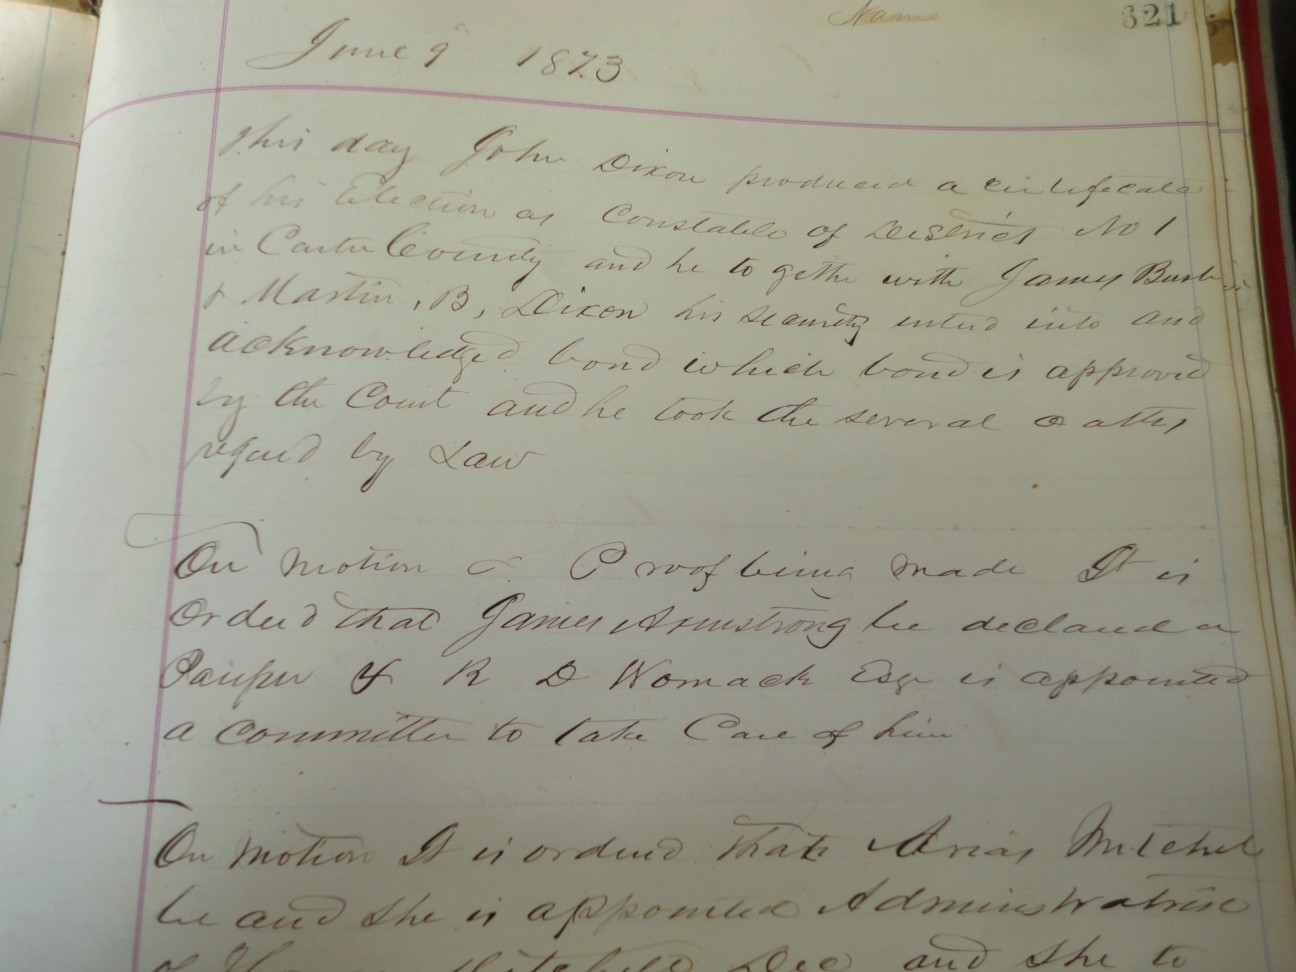 Name
621
June 9 1873
This day John Dixon produced a certifecate
of his Election as Constable of District No 1
in Carter County and he to gether with James
& Martin, B, Dixon his security entered into and
acknowledged bond which bond is approved
by the Court and he took the several oaths
requred by Law
On motion & Proof being made It is
Ordered that James Armstrong be declared a
Pauper & R D Womack Esqr is appointed
a committee to take Care of him
On motion It is ordered that Mitchel
be and she is appointed Administratrix
of Mitchell Dec and she to